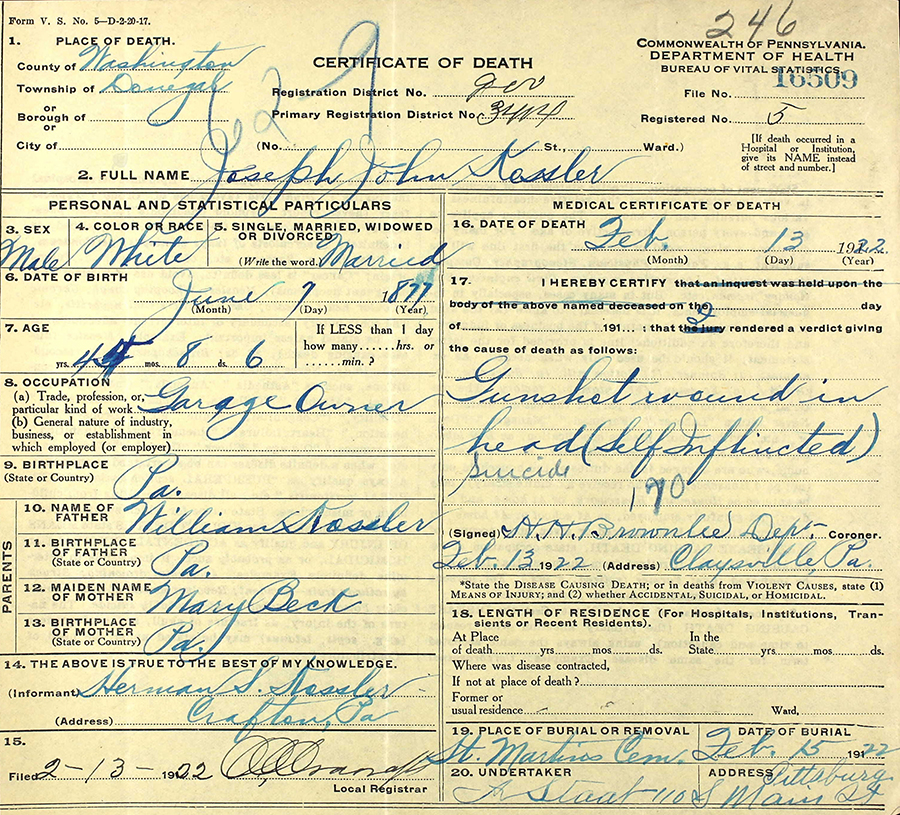 Form V. S. No. 5—D-2-20-17.
246
1. PLACE OF DEATH.
County of Washington
Township of Donegal
or
Borough of
or
City of
CERTIFICATE OF DEATH
Registration District No.
Primary Registration District No.
(No. St., Ward.)
COMMONWEALTH OF PENNSYLVANIA.
DEPARTMENT OF HEALTH
BUREAU OF VITAL STATISTICS.
File No. 16509
Registered No. 5
[If death occurred in a
Hospital or Institution,
give its NAME instead
of street and number.]
2. FULL NAME Joseph John Kossler
PERSONAL AND STATISTICAL PARTICULARS
3. SEX
Male
4. COLOR OR RACE
White
5. SINGLE, MARRIED, WIDOWED
OR DIVORCED
(Write the word.) Married
6. DATE OF BIRTH
June 7 1877
(Month) (Day) (Year)
7. AGE
yrs. 44 mos. 8 ds. 6
If LESS than 1 day
how many......hrs. or
......min.?
8. OCCUPATION
(a) Trade, profession, or
particular kind of work. Garage Owner
(b) General nature of industry,
business, or establishment in
which employed (or employer)
9. BIRTHPLACE
(State or Country) Pa.
PARENTS
10. NAME OF
FATHER William Kossler
11. BIRTHPLACE
OF FATHER
(State or Country) Pa.
12. MAIDEN NAME
OF MOTHER Mary Beck
13. BIRTHPLACE
OF MOTHER
(State or Country) Pa.
14. THE ABOVE IS TRUE TO THE BEST OF MY KNOWLEDGE.
(Informant) Herman S. Kossler
(Address) Crafton, Pa
15.
Filed 2-13-1922
Local Registrar
MEDICAL CERTIFICATE OF DEATH
16. DATE OF DEATH Feb. 13 1922
(Month) (Day) (Year)
17. I HEREBY CERTIFY that an inquest was held upon the
body of the above named deceased on the day
of 191... : that the jury rendered a verdict giving
the cause of death as follows:
Gunshot wound in
head (Self Inflicted)
Suicide
170
(Signed) H. H. Brownlee Dept. Coroner.
Feb. 13 1922 (Address) Claysville, Pa.
*State the DISEASE CAUSING DEATH; or in deaths from VIOLENT CAUSES, state (1)
MEANS OF INJURY; and (2) whether ACCIDENTAL, SUICIDAL, or HOMICIDAL.
18. LENGTH OF RESIDENCE (For Hospitals, Institutions, Tran-
sients or Recent Residents).
At Place In the
of death......yrs......mos......ds. State......yrs......mos......ds.
Where was disease contracted,
If not at place of death?
Former or
usual residence Ward,
19. PLACE OF BURIAL OR REMOVAL
St. Martins Cem.
DATE OF BURIAL
Feb. 15 1922
20. UNDERTAKER
A Staat
ADDRESS Pittsburg
110 S Main St